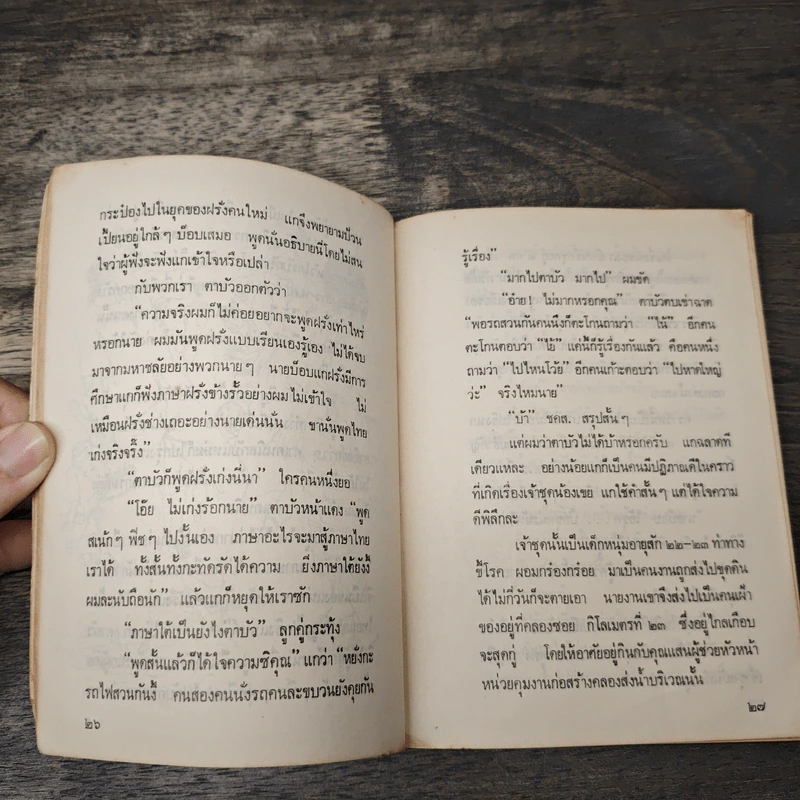 กระป๋องไปในยุคของฝรั่งคนใหม่ แกจึงพยายามป้วน
เปี้ยนอยู่ใกล้ๆ บ๊อบเสมอ พูดนั่นอธิบายนี่โดยไม่สน
ใจว่าผู้ฟังจะฟังแกเข้าใจหรือเปล่า
กับพวกเรา ตาบัวออกตัวว่า
“ความจริงผมก็ไม่ค่อยอยากจะพูดฝรั่งเท่าไหร่
หรอกนาย ผมมันพูดฝรั่งแบบเรียนเองรู้เอง ไม่ได้จบ
มาจากมหาชลัยอย่างพวกนายๆ นายบ๊อบแกฝรั่งมีการ
ศึกษาแกก็ฟังภาษาฝรั่งข้างรั้วอย่างผมไม่เข้าใจ ไม่
เหมือนฝรั่งช่างเถอะอย่างนายเด่นนั่น ขานั่นพูดไทย
เก่งจริงจริ๊ง”
“ตาบัวก็พูดฝรั่งเก่งนี่นา” ใครคนหนึ่งยอ
“โอ๊ย ไม่เก่งร้อกนาย” ตาบัวหน้าแดง “พูด
สเน้กๆ พีชๆ ไปงั้นเอง ภาษาอะไรจะมาสู้ภาษาไทย
เราได้ ทั้งสั้นทั้งกะทัดรัดได้ความ ยิ่งภาษาใต้ยังงี้
ผมละนับถือนัก” แล้วแกก็หยุดให้เราซัก
“ภาษาใต้เป็นยังไงตาบัว” ลูกคู่กระทุ้ง
“พูดสั้นแล้วก็ได้ใจความซิคุณ” แกว่า “หยั่งกะ
รถไฟสวนกันงี้ คนสองคนนั่งรถคนละขบวนยังคุยกัน
๒๖
รู้เรื่อง”
“มากไปตาบัว มากไป” ผมขัด
“อ๋าย! ไม่มากหรอกคุณ” ตาบัวตบเข่าฉาด
“พอรถสวนกันคนนึงก็ตะโกนถามว่า “ไน้” อีกคน
ตะโกนตอบว่า “ไย้” แค่นี้ก็รู้เรื่องกันแล้ว คือคนหนึ่ง
ถามว่า “ไปไหนโว้ย” อีกคนเก๊าะตอบว่า “ไปหาดใหญ่
ว่ะ” จริงไหมนาย”
“บ้า” ชคส. สรุปสั้นๆ
แต่ผมว่าตาบัวไม่ได้บ้าหรอกครับ แกฉลาดที
เดียวแหละ อย่างน้อยแกก็เป็นคนมีปฏิภาณดีในคราว
ที่เกิดเรื่องเจ้าชุดน้องเขย แกใช้คำสั้นๆ แต่ได้ใจความ
ดีพิลึกละ
เจ้าชุดนั้นเป็นเด็กหนุ่มอายุสัก ๒๒–๒๓ ท่าทาง
ขี้โรค ผอมกร่องกร่อย มาเป็นคนงานถูกส่งไปขุดดิน
ได้ไม่กี่วันก็จะตายเอา นายงานเขาจึงส่งไปเป็นคนเฝ้า
ของอยู่ที่คลองซอย กิโลเมตรที่ ๒๓ ซึ่งอยู่ไกลเกือบ
จะสุดกู่ โดยให้อาศัยอยู่กินกับคุณแสนผู้ช่วยหัวหน้า
หน่วยคุมงานก่อสร้างคลองส่งน้ำบริเวณนั้น
๒๗